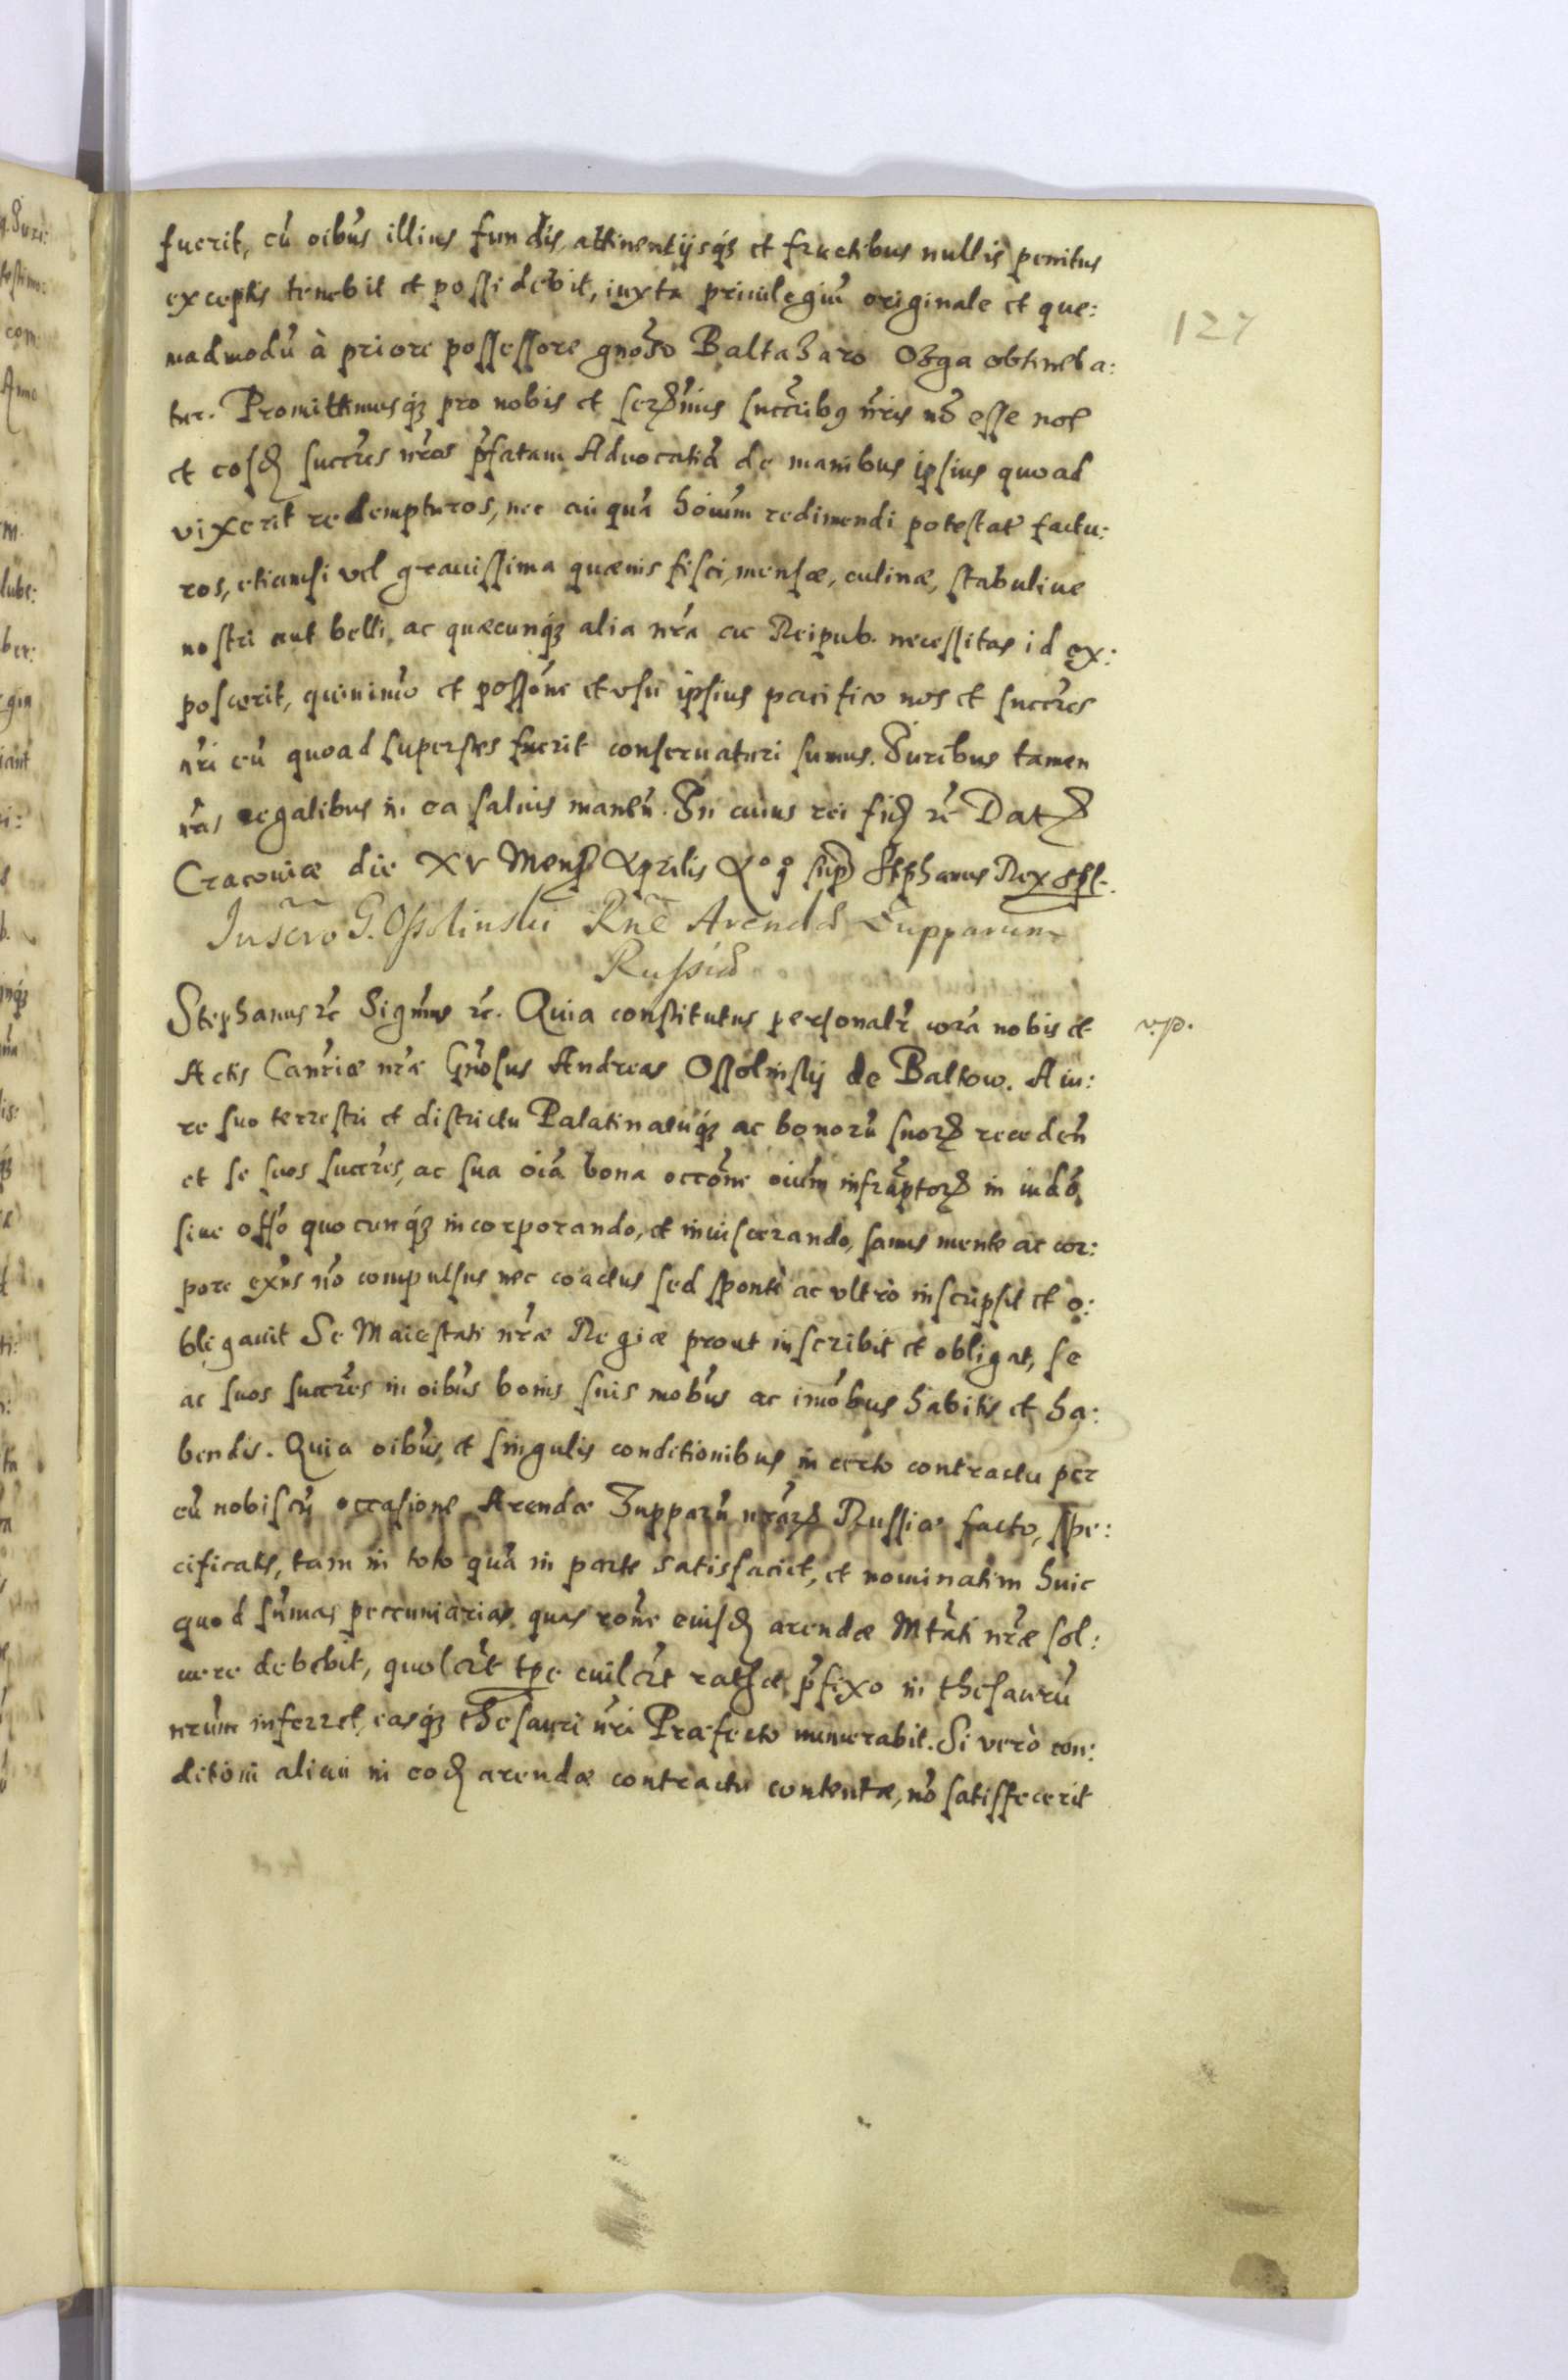 127
fuerit, cũ oibus illius fundis, attinentijsq3 et fructibus nullis penitus
exceptis tenebit et possidebit, iuxta priuilegiũ originale et que:
madmodũ à priore possessore gnoso Baltazaro Ozga obtineba:
tur. Promittimusq3 pro nobis et serẽmis succribus nris nõ esse nos
et eosd succres nros pfatam Aduocatiã de manibus ipsius quoad
vixerit redempturos, nec cuiquã hoium redimendi potestatẽ factu:
ros, etiamsi vel grauissima quæuis fisci, mensæ, culinæ, stabuliue
nostri aut belli, ac quæcunq3 alia nra ac Reipub. necessitas id ex:
poscerit, quinimo et possõne et vsu ipsius pacifico nos et succres
nri eũ quoad superstes fuerit conseruaturi sumus. Iuribus tamen
nris regalibus in ea saluis manẽn. In cuius rei fid rc Dat
Cracouiæ die XV Mens Aprilis Aº q sup Stephanus Rex sst.
Inscro G. Ossolinski Rnẽ Arendæ Zupparum
Russiæ
Stephanus rc Signms rc. Quia constitutus personalr corã nobis et
v.p.
Actis Canriæ nræ Gnosus Andreas Ossolinskij de Baltow. A iu:
re suo terrestri et districtu Palatinatuq3 ac bonorũ suor recedeñ
et se suos succres, ac sua oia bona occõne oium infraptor in iudõ
siue offo quocunq3 incorporando, et inuiscerando, sanus mente ac cor:
pore exñs nõ compulsus nec coactus sed sponte ac vltrò inscripsit et o:
bligauit Se Maiestati nræ Regiæ prout inscribit et obligat, se
ac suos succres in oibus bonis suis mobus ac imobus habitis et ha:
bendis. Quia oibus et singulis conditionibus in certo contractu per
eũ nobiscũ occasione Arendæ Zupparũ nrar Russiæ facto, spe:
cificatis, tam in toto quã in parte satisfaciet, et nominatim huic
quod sũmas peccuniarias quas rõne eiusd arendæ Mtati nræ sol:
uere debebit, quolrt tpe cuilrt ratæ pfixo in thesaurũ
nrum inferret, easq3 thesauri nri Præfecto numerabit. Si verò con:
ditõni alicui in eod arendæ contractu contentæ, nõ satisfecerit